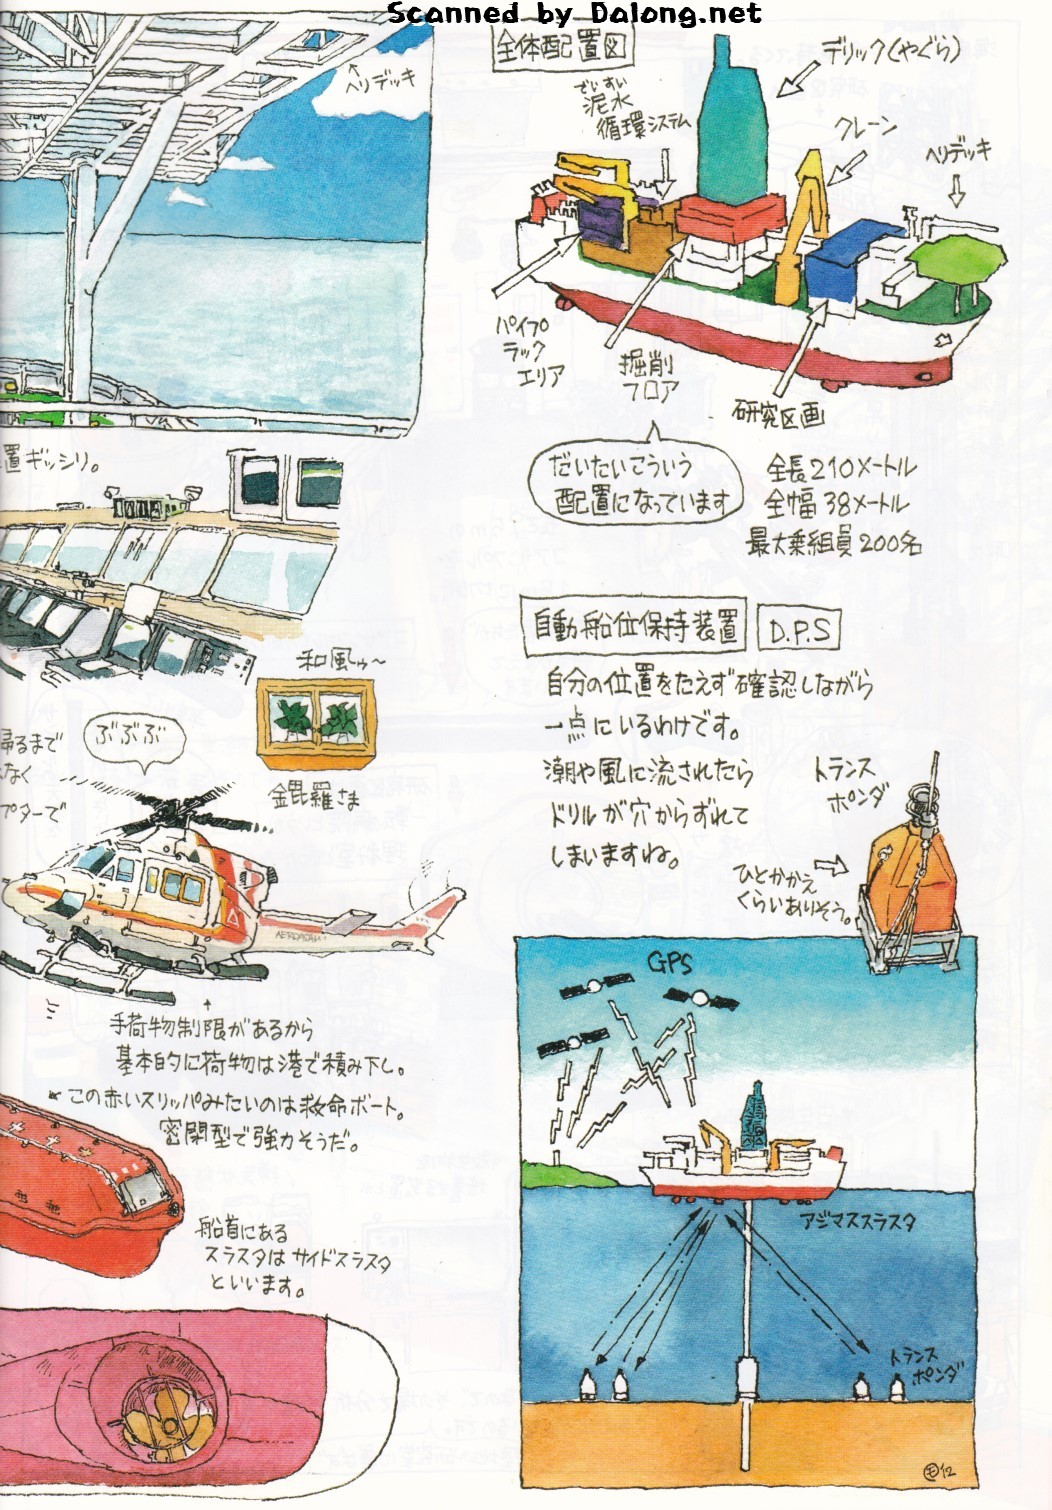 Scanned by Dalong.net
ヘリデッキ
置ギッシリ。
和風ゥ〜
ぶぶぶ
帰るまで
なく
プターで
金毘羅さま
手荷物制限があるから
基本的に荷物は港で積み下し。
この赤いスリッパみたいのは救命ボート。
密閉型で強力そうだ。
船首にある
スラスタはサイドスラスタ
といいます。
全体配置図
デリック(やぐら)
でいすい
泥水
循環システム
クレーン
ヘリデッキ
パイプ
ラック
エリア
掘削
フロア
研究区画
だいたいこういう
配置になっています
全長210メートル
全幅38メートル
最大乗組員200名
自動船位保持装置
D.P.S
自分の位置をたえず確認しながら
一点にいるわけです。
潮や風に流されたら
ドリルが穴からずれて
しまいますね。
トランス
ポンダ
ひとかかえ
くらいありそう。
GPS
アジマススラスタ
トランス
ポンダ